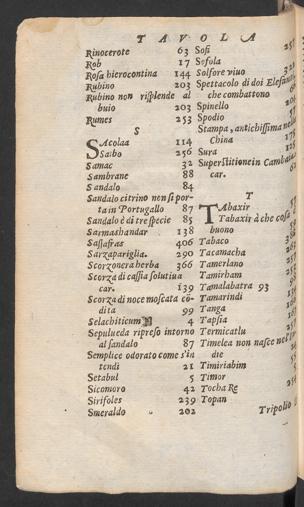 TAVOLA
Rinocerote 63
Rob 17
Rosa hierocontina 144
Rubino 203
Rubino non risplende al
buio 203
Rumes 253
S
SAcolaa 114
Saibo 256
Samac 32
Sambrane 88
Sandalo 84
Sandalo citrino non si por-
ta in Portugallo 87
Sandalo è di tre specie 85
Sarmashandar 138
Sassafras 406
Sarzapariglia. 290
Scorzonera herba 366
Scorza di cassia solutiua
car. 139
Scorza di noce moscata cō-
dita 99
Selachiticum 4
Sepulueda ripreso intorno
al sandalo 87
Semplice odorato come s'in
tendi 21
Setabul 5
Sicomoro 42
Sirifoles 239
Smeraldo 202
Sofi
Sofola
Solfore viuo
Spettacolo di doi Elefanti
che combattono
Spinello
Spodio
Stampa, antichissima nella
China
Sura
Superstitione in Cambaia
car.
T
TAbaxir
Tabaxir à che cosa
buono
Tabaco
Tacamacha
Tamerlano
Tamirham
Tamalabatra 93
Tamarindi
Tanga
Tapsia
Termicatlu
Timelea non nasce nel
die
Timiriabim
Timor
Tocha Re
Topan
Tripolio